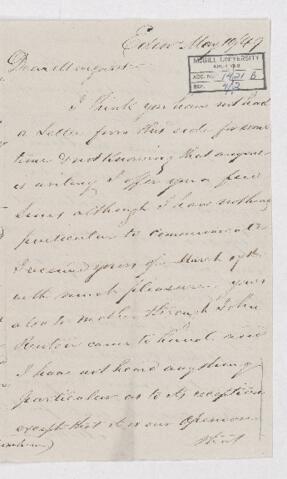 Edinr May 10/49
McGILL UNIVERSITY
ARCHIVES
ACC. NO. 1421 B
REF.
Dear Margaret
I think you have not had
a letter from this side for some
time & not knowing that anyone
is writing I offer you a few
lines although I have nothing
particular to communicate
I received yours of March
with much pleasure yours
also to mother through John
Renton came to hand
I have not heard anything
particular as to its reception
except that it is our opinion
that